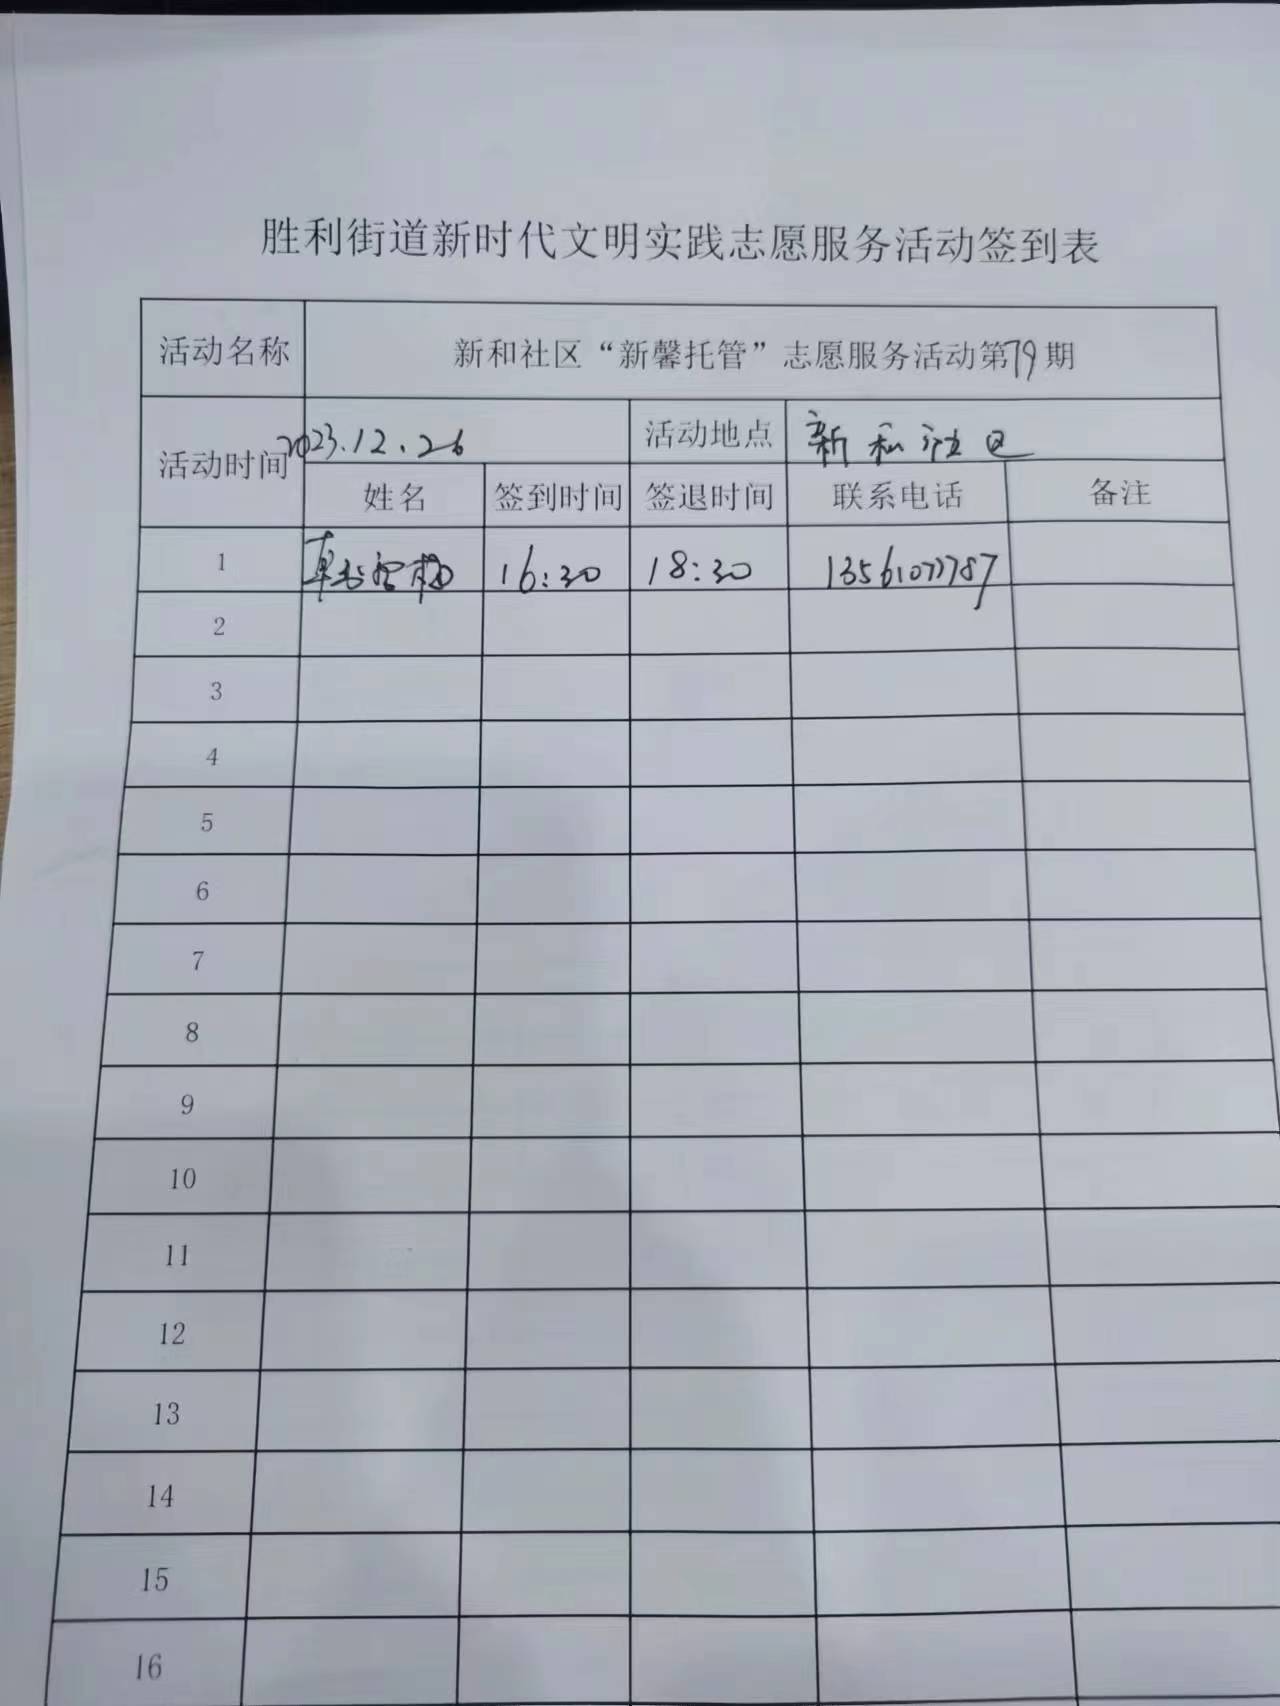 胜利街道新时代文明实践志愿服务活动签到表
活动名称 新和社区“新馨托管”志愿服务活动第79期
活动时间 2023.12.26 活动地点 新和社区
姓名 签到时间 签退时间 联系电话 备注
1 16:30 18:30 13561077787
2
3
4
5
6
7
8
9
10
11
12
13
14
15
16